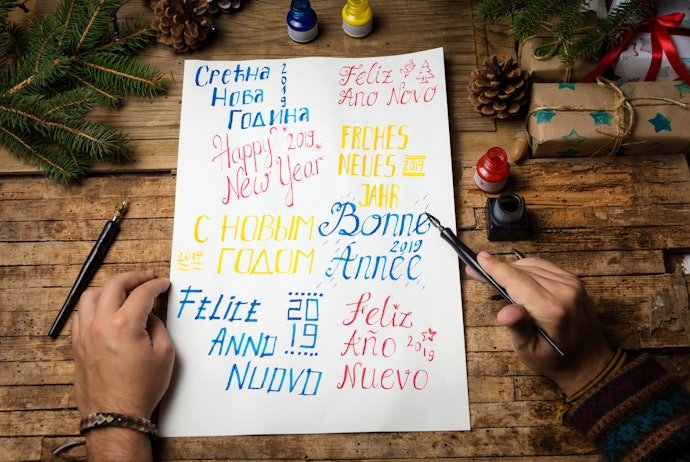 Срећна
Нова
Година
2019
Feliz
Ano Novo
Happy 2019
New Year
FROHES
NEUES 2019
JAHR
С НОВЫМ
2019 ГОДОМ
Bonne
2019
Année
FELICE 20
ANNO 19
NUOVO
Feliz
Año 2019
Nuevo